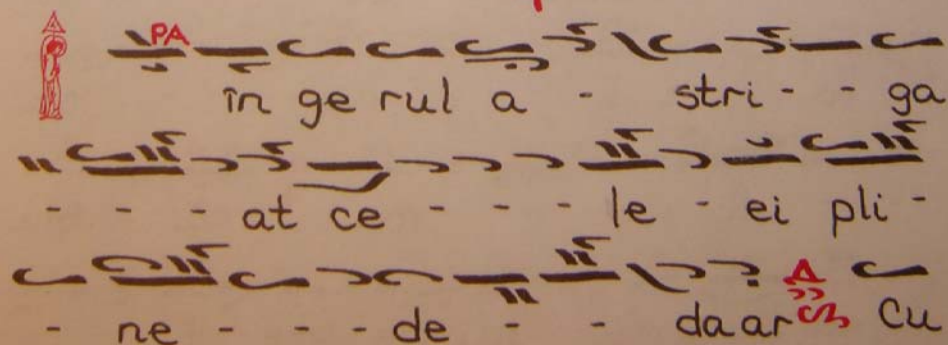 PA
în ge rul a - stri - - ga
- - - at ce - - - le - ei pli -
- ne - - - de - - da ar cu